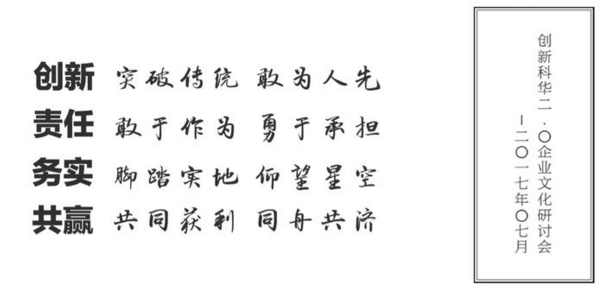 创新 突破传统 敢为人先
责任 敢于作为 勇于承担
务实 脚踏实地 仰望星空
共赢 共同获利 同舟共济
创新科华二.〇企业文化研讨会
－二〇一七年〇七月